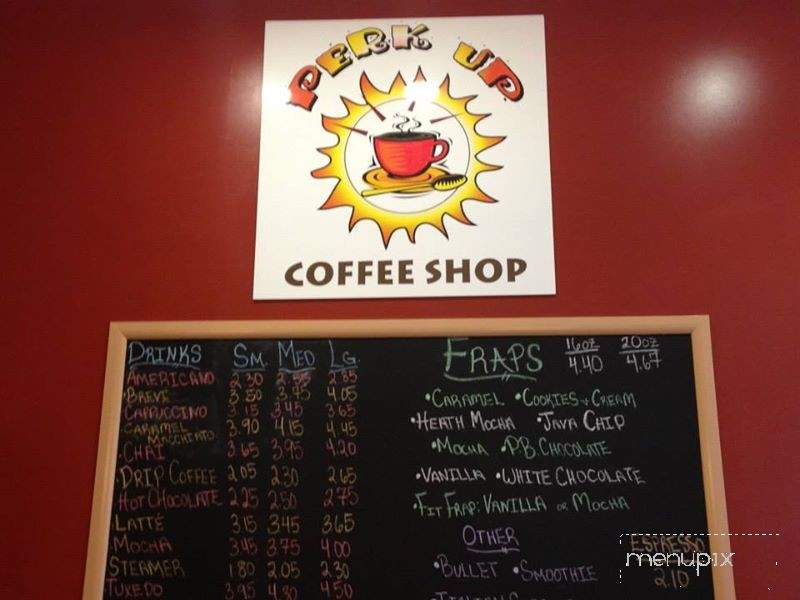 PERK UP
COFFEE SHOP
DRINKS SM. MED LG.
AMERICANO 2.30 2.55 2.85
·BREVE 3.50 3.75 4.05
CAPPUCCINO 3.15 3.45 3.65
·CARAMEL MACCHIATO 3.90 4.15 4.45
·CHAI 3.65 3.95 4.20
·DRIP COFFEE 2.05 2.30 2.65
HOT CHOCOLATE 2.25 2.50 2.75
·LATTE 3.15 3.45 3.65
MOCHA 3.45 3.75 4.00
STEAMER 1.80 2.05 2.30
TUXEDO 3.95 4.50
FRAPS 16oz 20oz
4.40 4.67
·CARAMEL ·COOKIES & CREAM
·HEATH MOCHA ·JAVA CHIP
·MOCHA ·P.B. CHOCOLATE
·VANILLA ·WHITE CHOCOLATE
·FIT FRAP: VANILLA OR MOCHA
OTHER
·BULLET ·SMOOTHIE
ESPRESSO
2.10
menupix